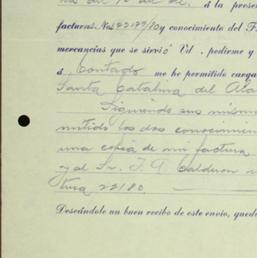 á la present
facturas Nos 22179/80 y conocimiento del F.
mercancias que se sirvió Vd. pedirme y
d Contado me he permitido carga
Santa Catalina del
Siguiendo sus mismo
mitido los dos conocimien
una copia de mi factura
y al Sr. J. A Calderon
tura 22180.
Deseándole un buen recibo de este envío, qued